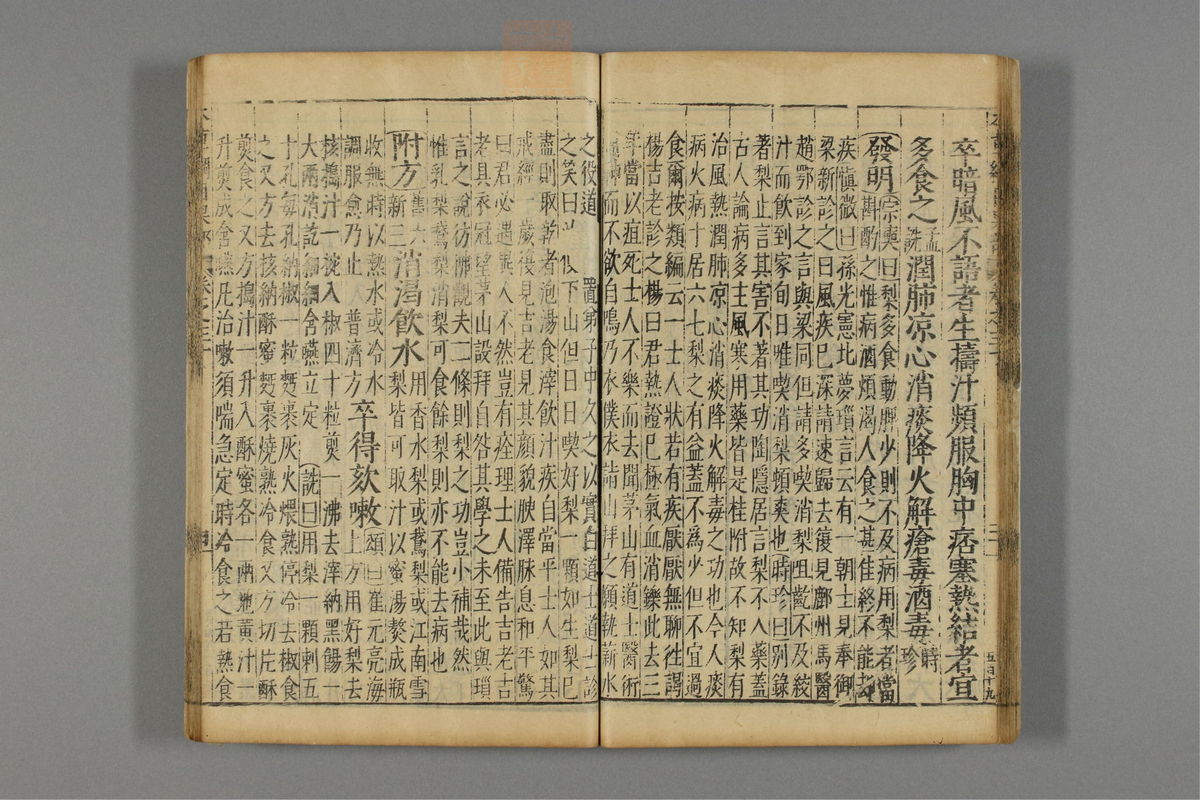 卒暗風不語者生擣汁頻服胸中痞塞熱結者宜
多食之孟詵潤肺凉心消痰降火解瘡毒酒毒時珍
發明宗奭曰梨多食動脾少則不及病用梨者當
斟酌之惟病酒煩渴人食之甚佳終不能却
疾愼微曰孫光憲北夢瑣言云有一朝士見奉御
梁新診之曰風疾已深請速歸去復見鄜州馬醫
趙鄂診之言與梁同但請多喫消梨咀齕不及絞
汁而飲到家旬日唯喫消梨頓爽也時珍曰別錄
著梨止言其害不著其功陶隱居言梨不入藥蓋
古人論病多主風寒用藥皆是桂附故不知梨有
治風熱潤肺凉心消痰降火解毒之功也今人痰
病火病十居六七梨之有益蓋不爲少但不宜過
食爾按類編云一士人狀若有疾厭厭無聊徃謁
楊吉老診之楊曰君熱證已極氣血消鑠此去三
年當以疽死士人不樂而去聞茅山有道士醫術
通神而不欲自鳴乃衣僕衣詣山拜之願執薪水
之役道士置弟子中久之以實白道士道士診
之笑曰 下山但日日喫好梨一顆如生梨已
盡則取乾者泡湯食滓飲汁疾自當平士人如其
戒經一歲復見吉老見其顔貌腴澤脉息和平驚
曰君必遇異人不然豈有痊理士人備告吉老吉
老具衣冠望茅山設拜自咎其學之未至此與瑣
言之說彷彿觀夫二條則梨之功豈小補哉然
惟乳梨鵞梨消梨可食餘梨則亦不能去病也
附方舊六新三消渴飲水用香水梨或鵞梨或江南雪
梨皆可取汁以蜜湯熬成瓶
收無時以熱水或冷水
調服愈乃止普濟方卒得欬嗽頌曰崔元亮海
上方用好梨去
核擣汁一椀入椒四十粒煎一沸去滓納黑餳一
大兩消訖細細含嚥立定詵曰用梨一顆刺五
十孔每孔納椒一粒麪裹灰火煨熟停冷去椒食
之又方去核納酥蜜麪裹燒熟冷食又方切片酥
煎食之又方擣汁一升入酥蜜各一兩地黄汁一
升煎成含嚥凡治嗽須喘急定時冷食之若熱食